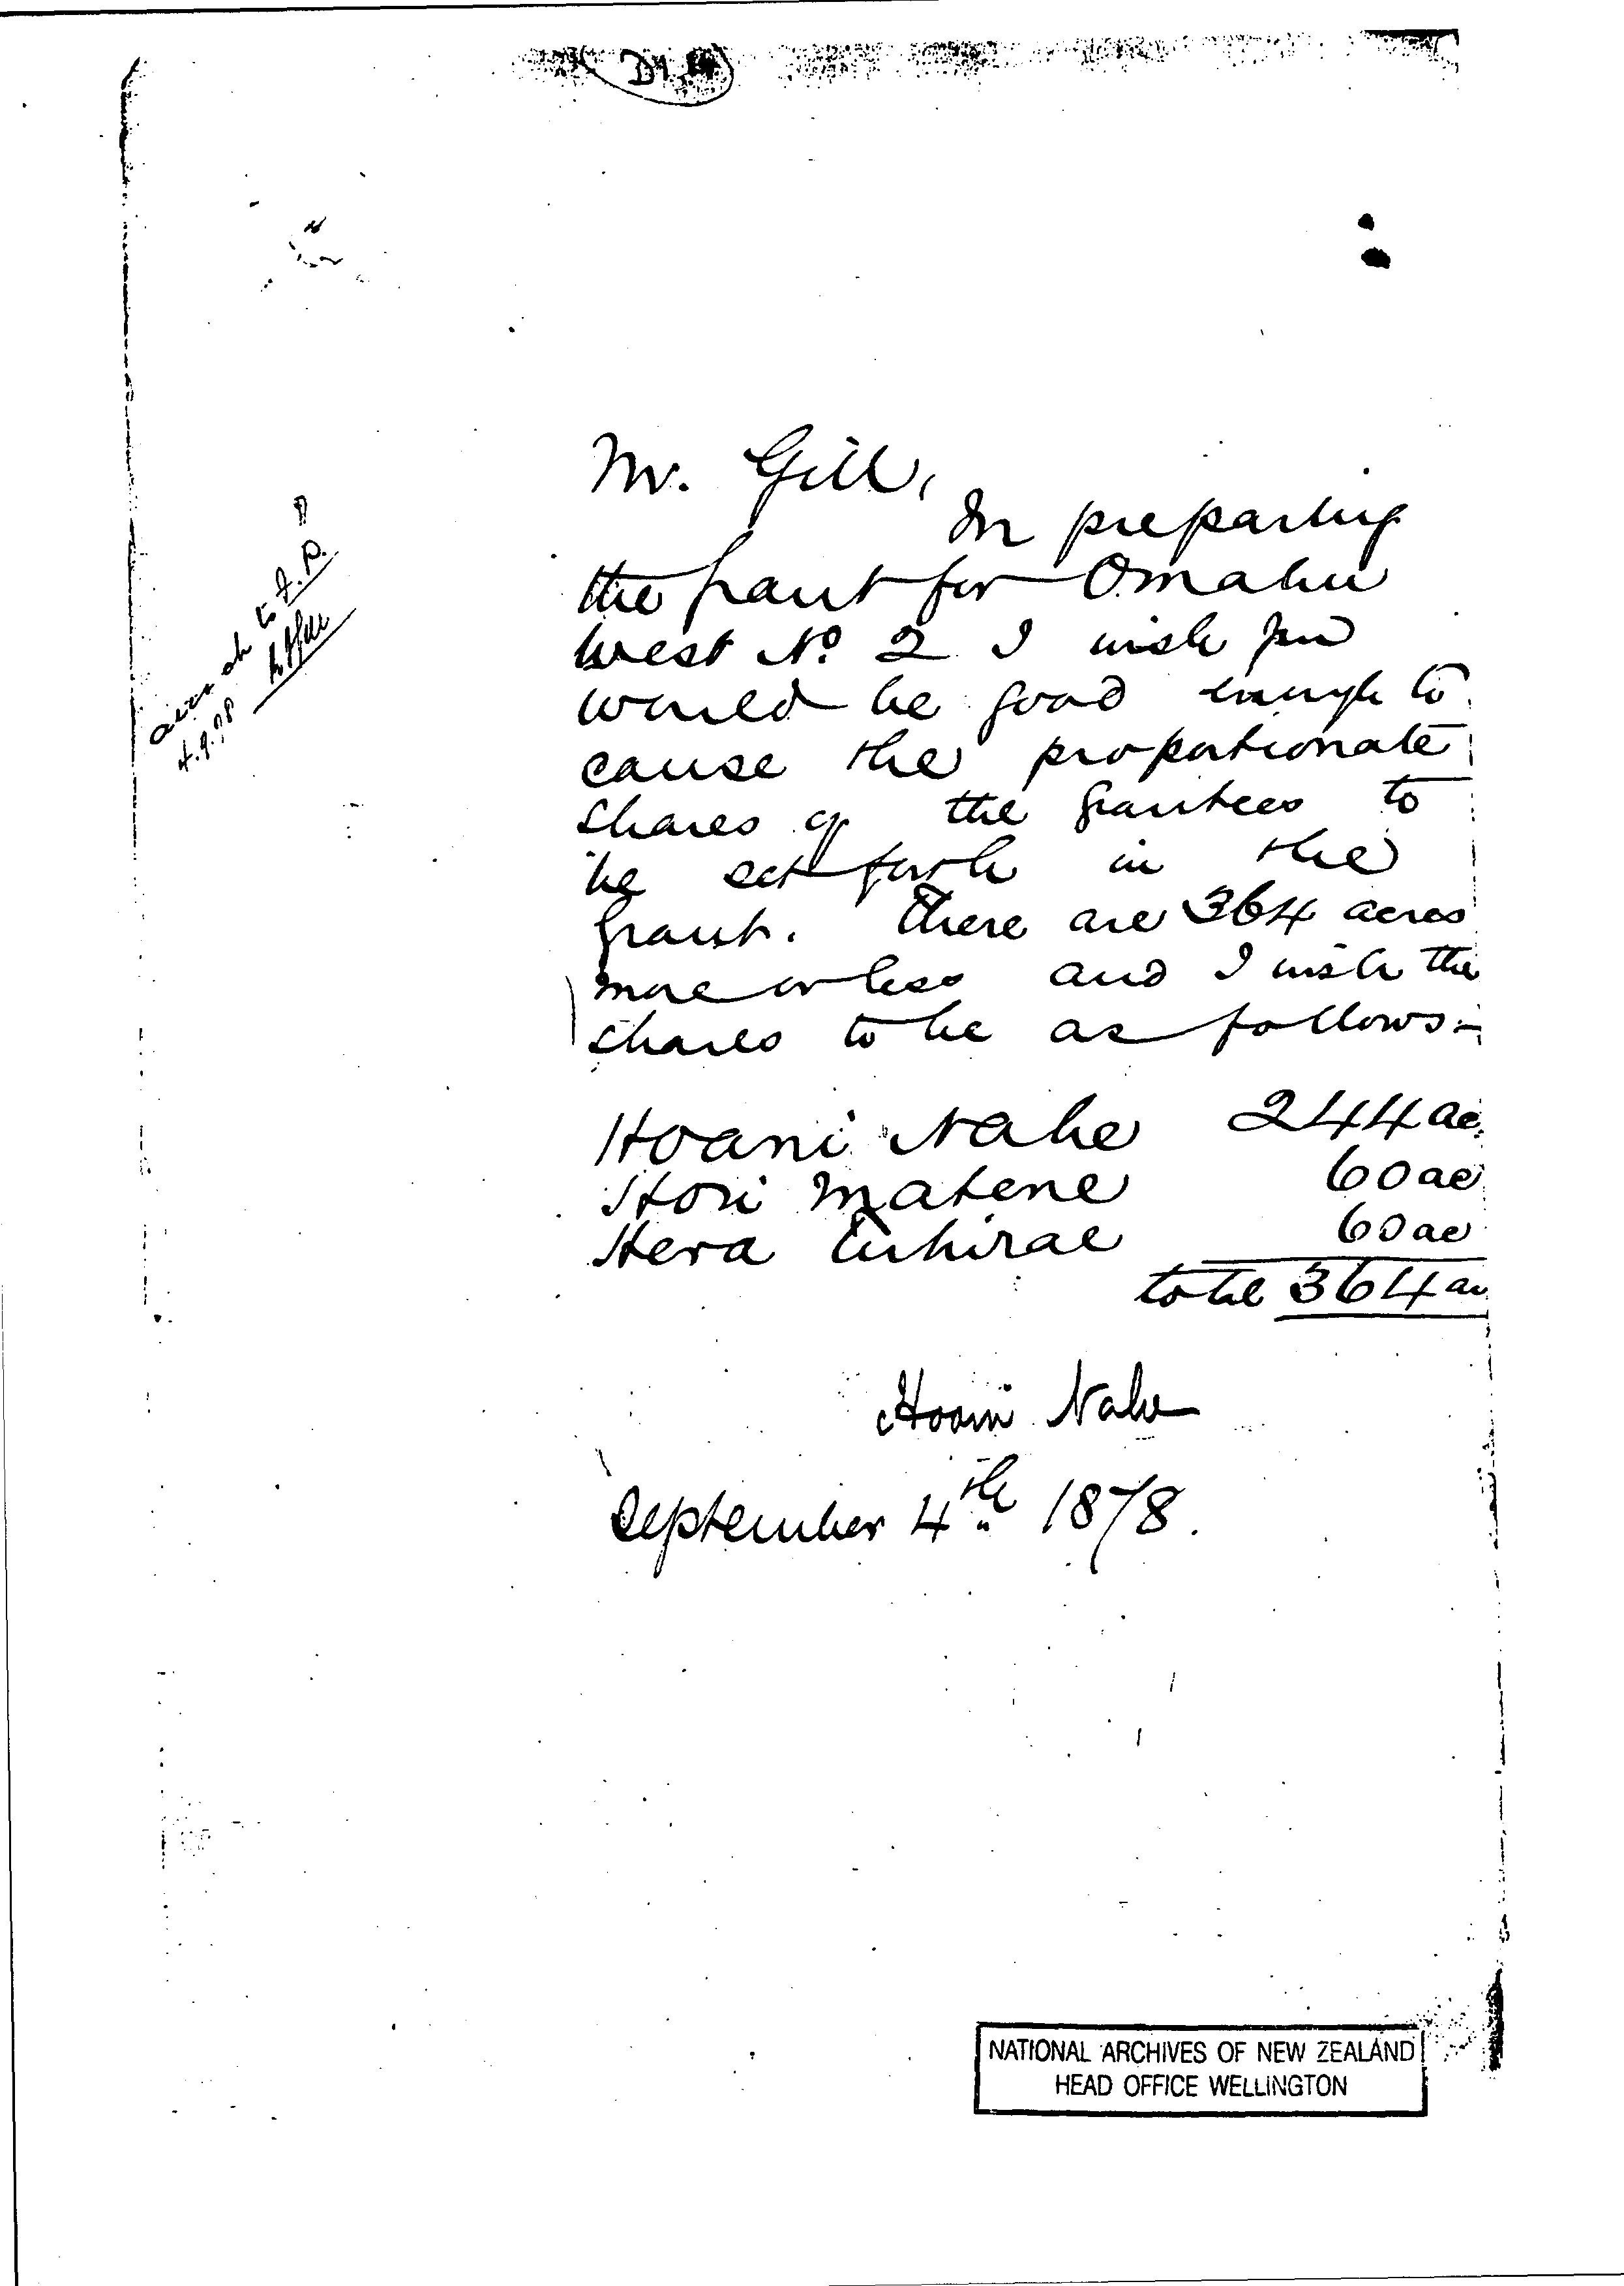 Mr. Gill,
In preparing
the grant for Omahu
West No. 2 I wish you
would be good enough to
cause the proportionate
shares of the grantees to
be set forth in the
grant. There are 364 acres
more or less and I wish the
shares to be as follows:-
Hoani Nahe 244 ac.
Hori Matene 60 ac
Hera Tuhirae 60 ac
total 364 ac
Hoani Nahe
September 4th 1878.
to
4.9.78
NATIONAL ARCHIVES OF NEW ZEALAND
HEAD OFFICE WELLINGTON